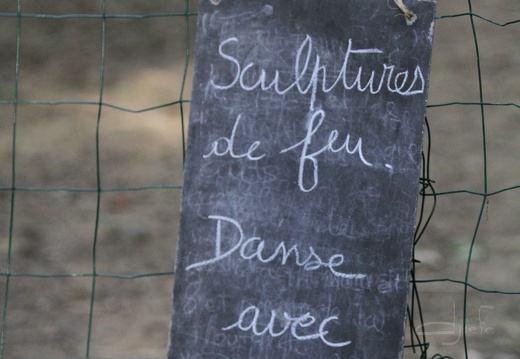 Sculptures
de feu.
Danse
avec